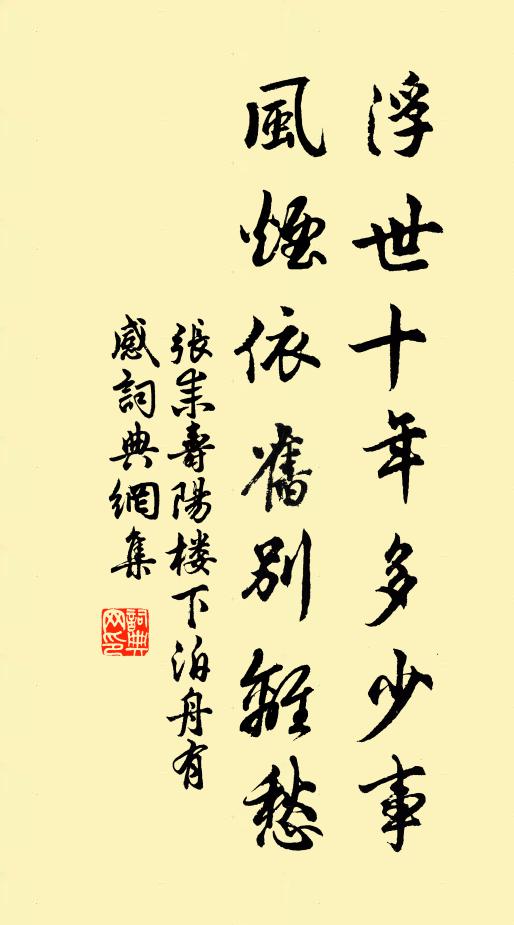 浮世十年多少事
風煙依舊別離愁
張耒壽陽楼下泊舟有
感詞典網集
詞典
网印